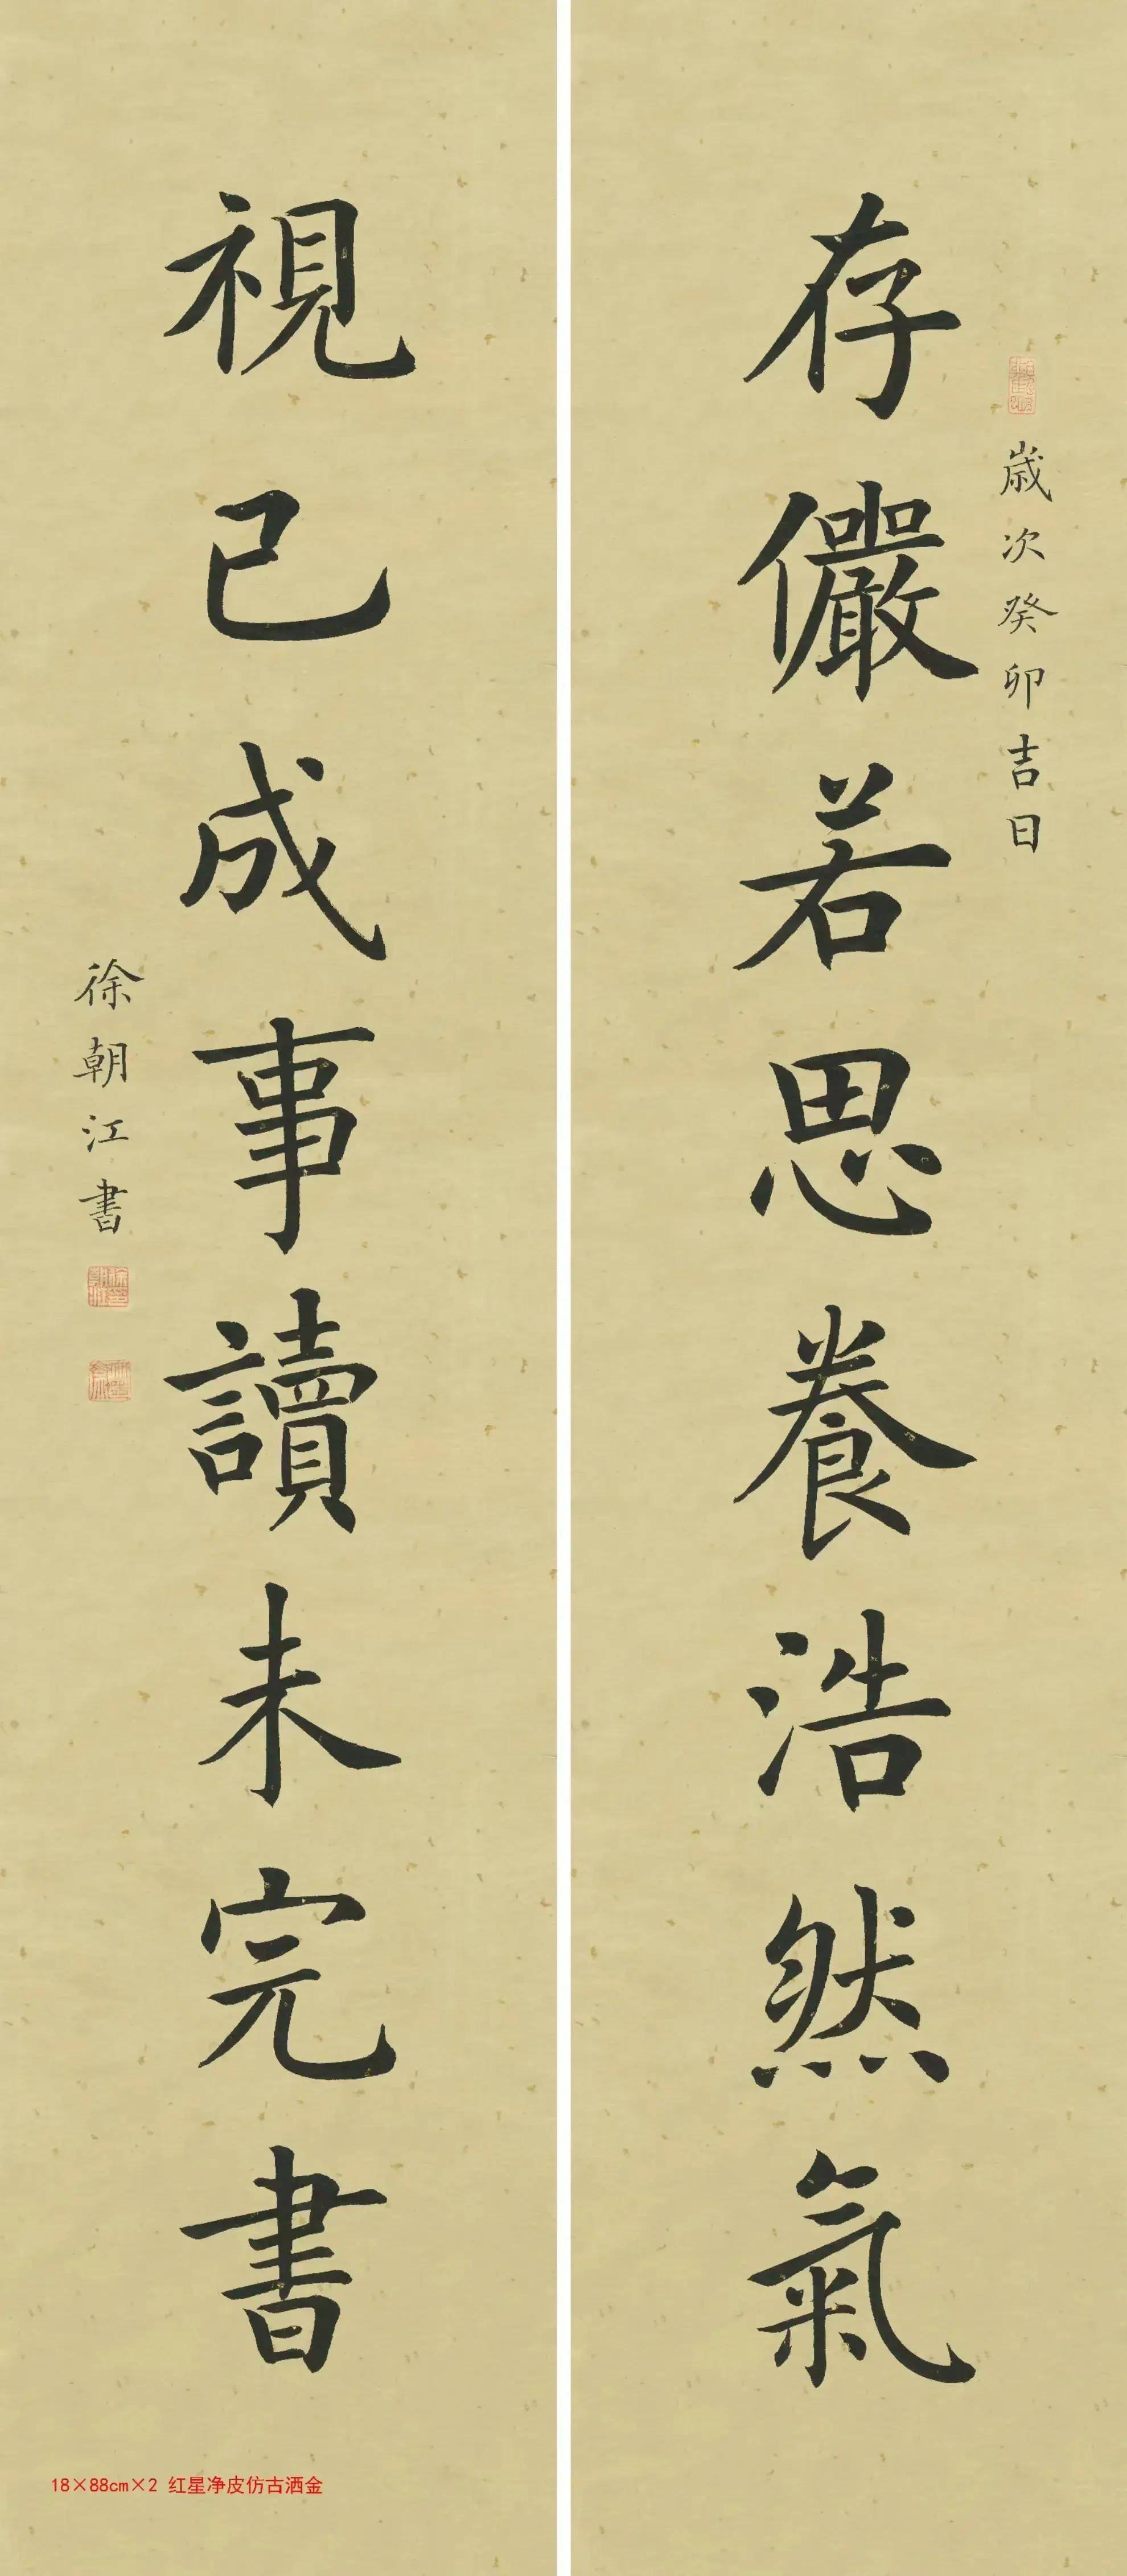 存儼若思養浩然氣
歲次癸卯吉日
視已成事讀未完書
徐朝江書
18×88cm×2 红星净皮仿古洒金